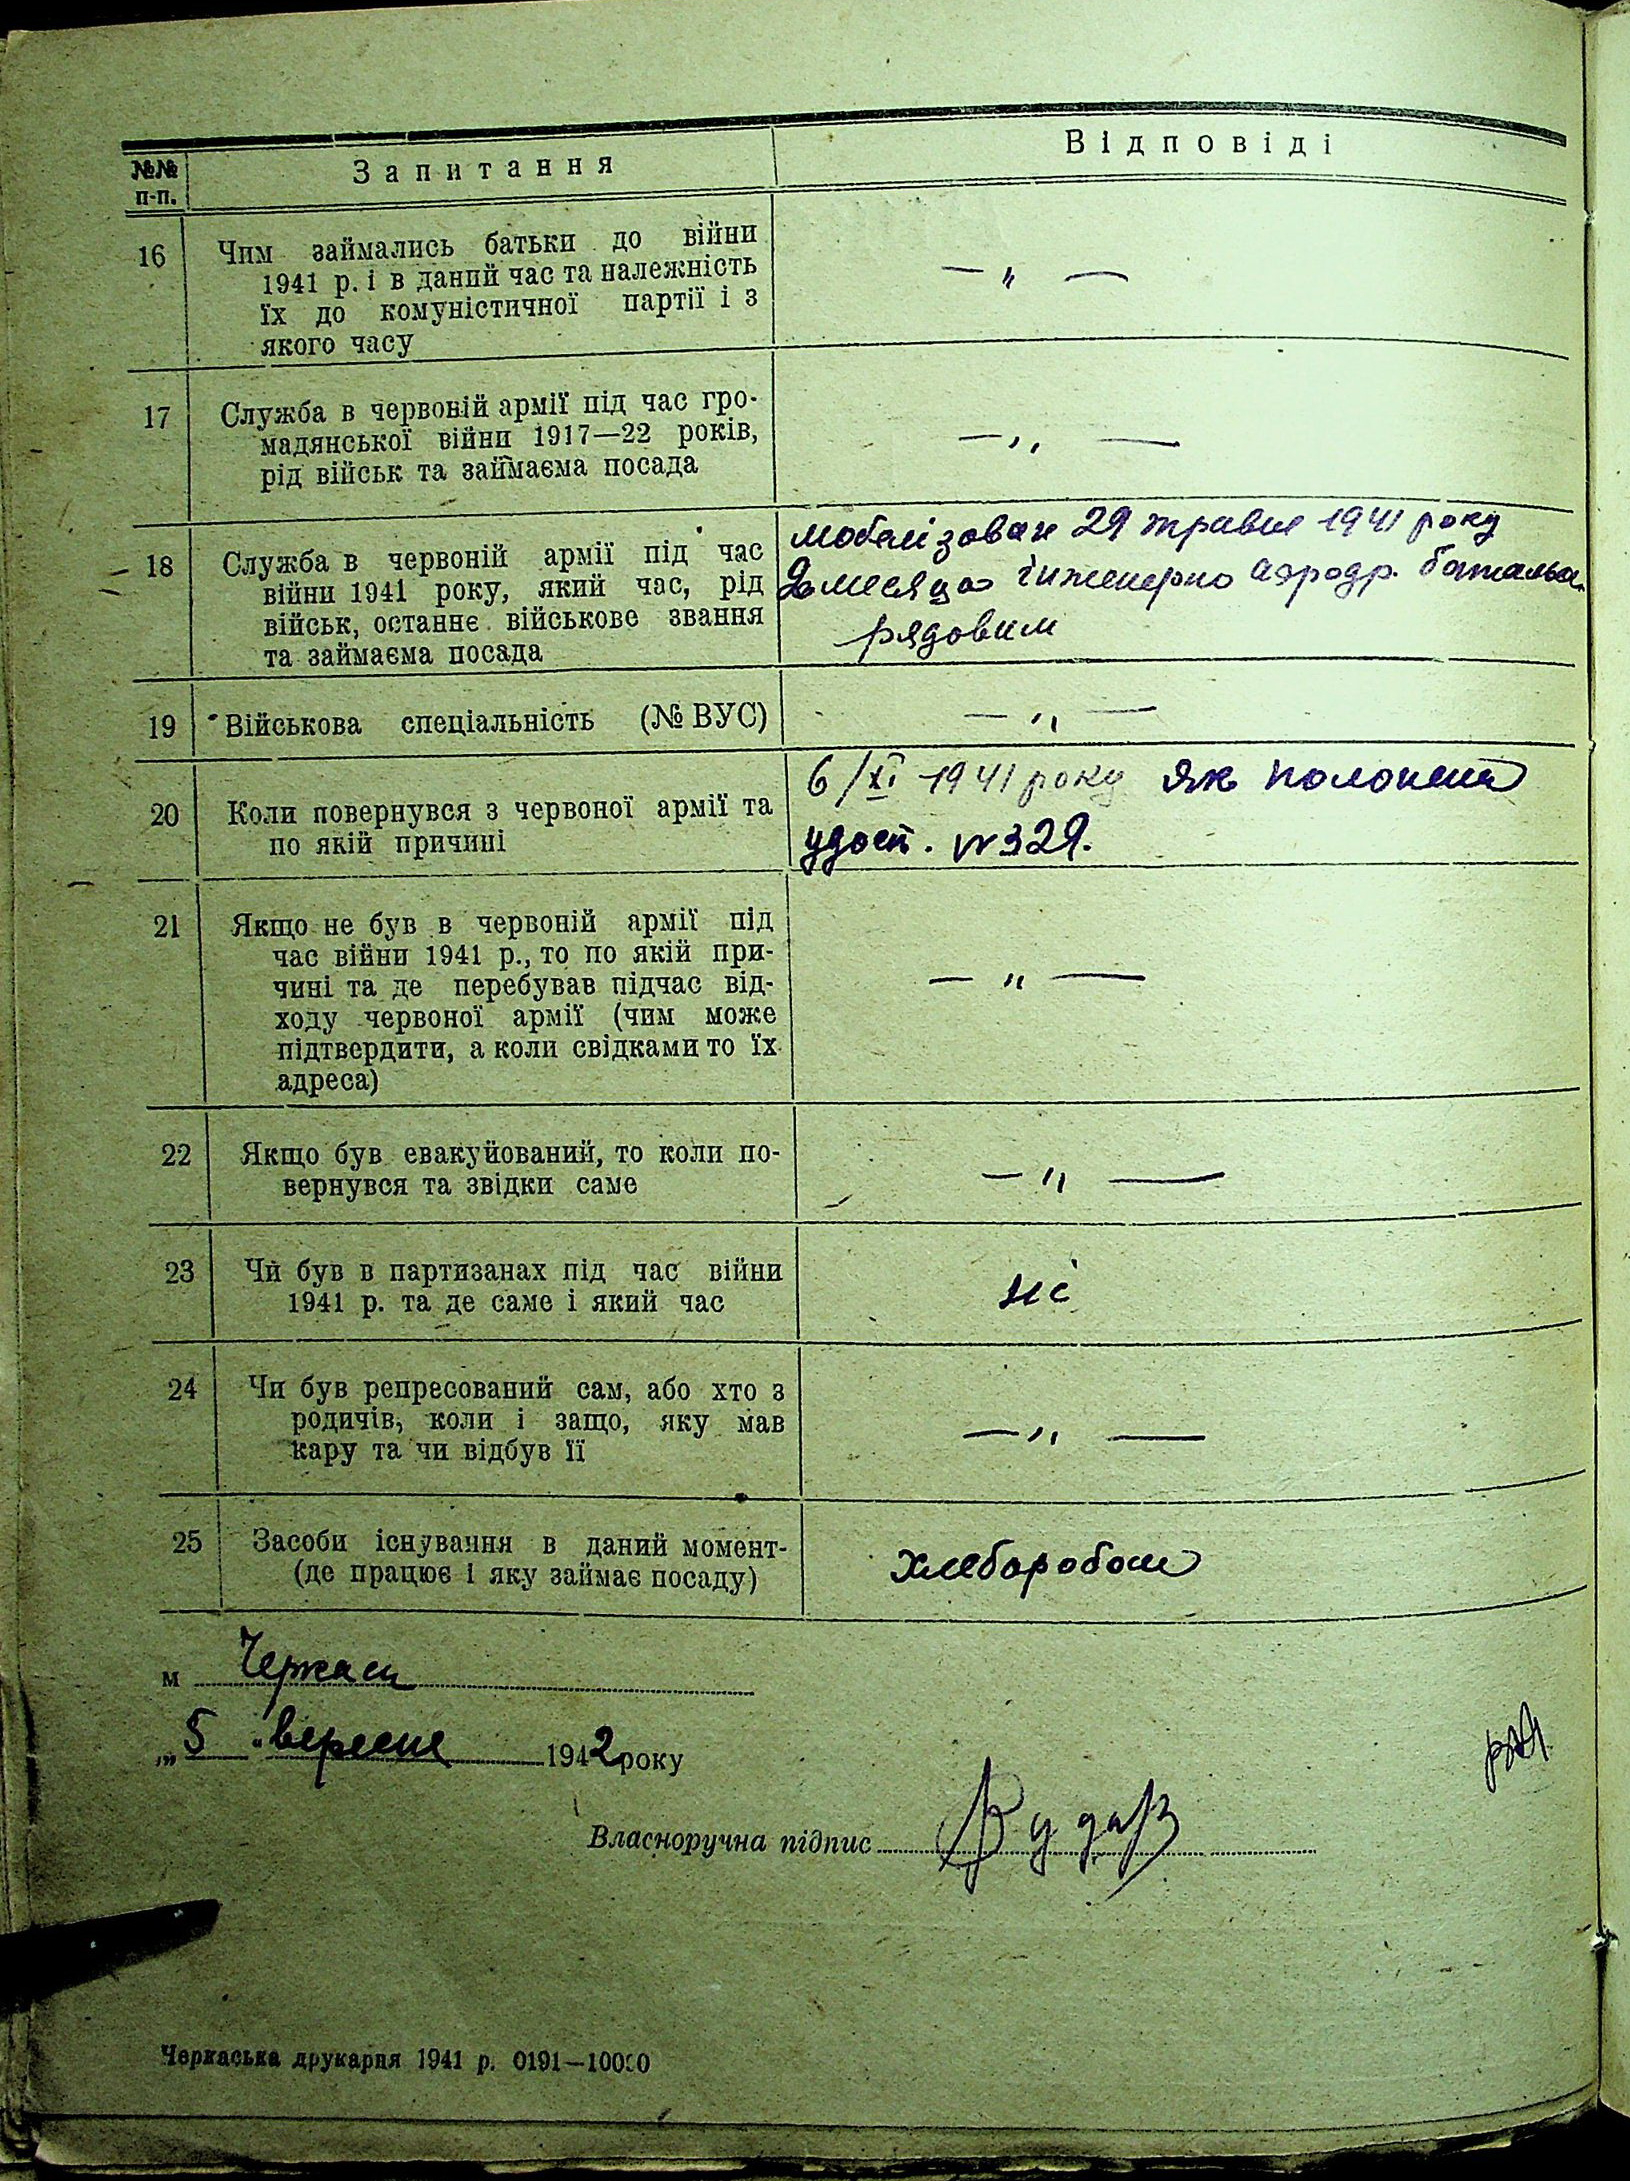 №№ п-п. Запитання Відповіді
16 Чим займались батьки до війни
1941 р. і в даний час та належність
їх до комуністичної партії і з
якого часу
— „ —
17 Служба в червоній армії під час гро-
мадянської війни 1917—22 років,
рід військ та займаєма посада
— „ —
18 Служба в червоній армії під час
війни 1941 року, який час, рід
військ, останнє військове звання
та займаєма посада
мобелізован 29 травня 1941 року
2 месяца інженерно аэродр. батальа
рядовим
19 Військова спеціальність (№ ВУС)
— „ —
20 Коли повернувся з червоної армії та
по якій причині
6/XI 1941 року як полонений
удост. №329.
21 Якщо не був в червоній армії під
час війни 1941 р., то по якій при-
чині та де перебував підчас від-
ходу червоної армії (чим може
підтвердити, а коли свідками то їх
адреса)
— „ —
22 Якщо був евакуйований, то коли по-
вернувся та звідки саме
— „ —
23 Чи був в партизанах під час війни
1941 р. та де саме і який час
ні
24 Чи був репресований сам, або хто з
родичів, коли і защо, яку мав
кару та чи відбув її
— „ —
25 Засоби існування в даний момент-
(де працює і яку займає посаду)
хлеборобом
м Черкаси
„5" вересня 1942 року
Власноручна підпис
Черкаська друкарня 1941 р. 0191—10000